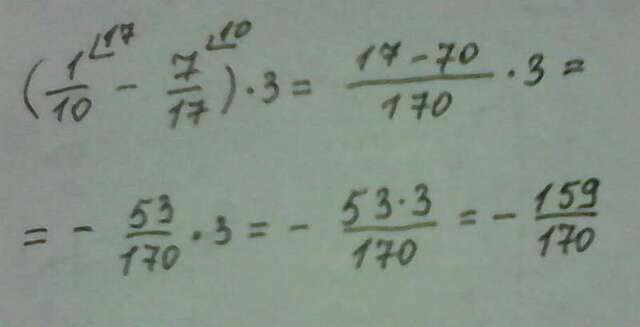 (1/10 ∟17 − 7/17 ∟10) · 3 = 17 − 70/170 · 3 =
= − 53/170 · 3 = − 53·3/170 = − 159/170